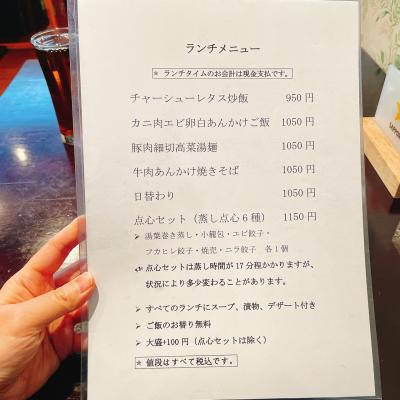 ランチメニュー
* ランチタイムのお会計は現金支払です。
チャーシューレタス炒飯 950円
カニ肉エビ卵白あんかけご飯 1050円
豚肉細切高菜湯麺 1050円
牛肉あんかけ焼きそば 1050円
日替わり 1050円
点心セット（蒸し点心6種） 1150円
➢ 湯葉巻き蒸し・小龍包・エビ餃子・
フカヒレ餃子・焼売・ニラ餃子 各1個
点心セットは蒸し時間が17分程かかりますが、
状況により多少変わることがあります。
➢ すべてのランチにスープ、漬物、デザート付き
➢ ご飯のお替り無料
➢ 大盛+100円（点心セットは除く）
* 値段はすべて税込です。